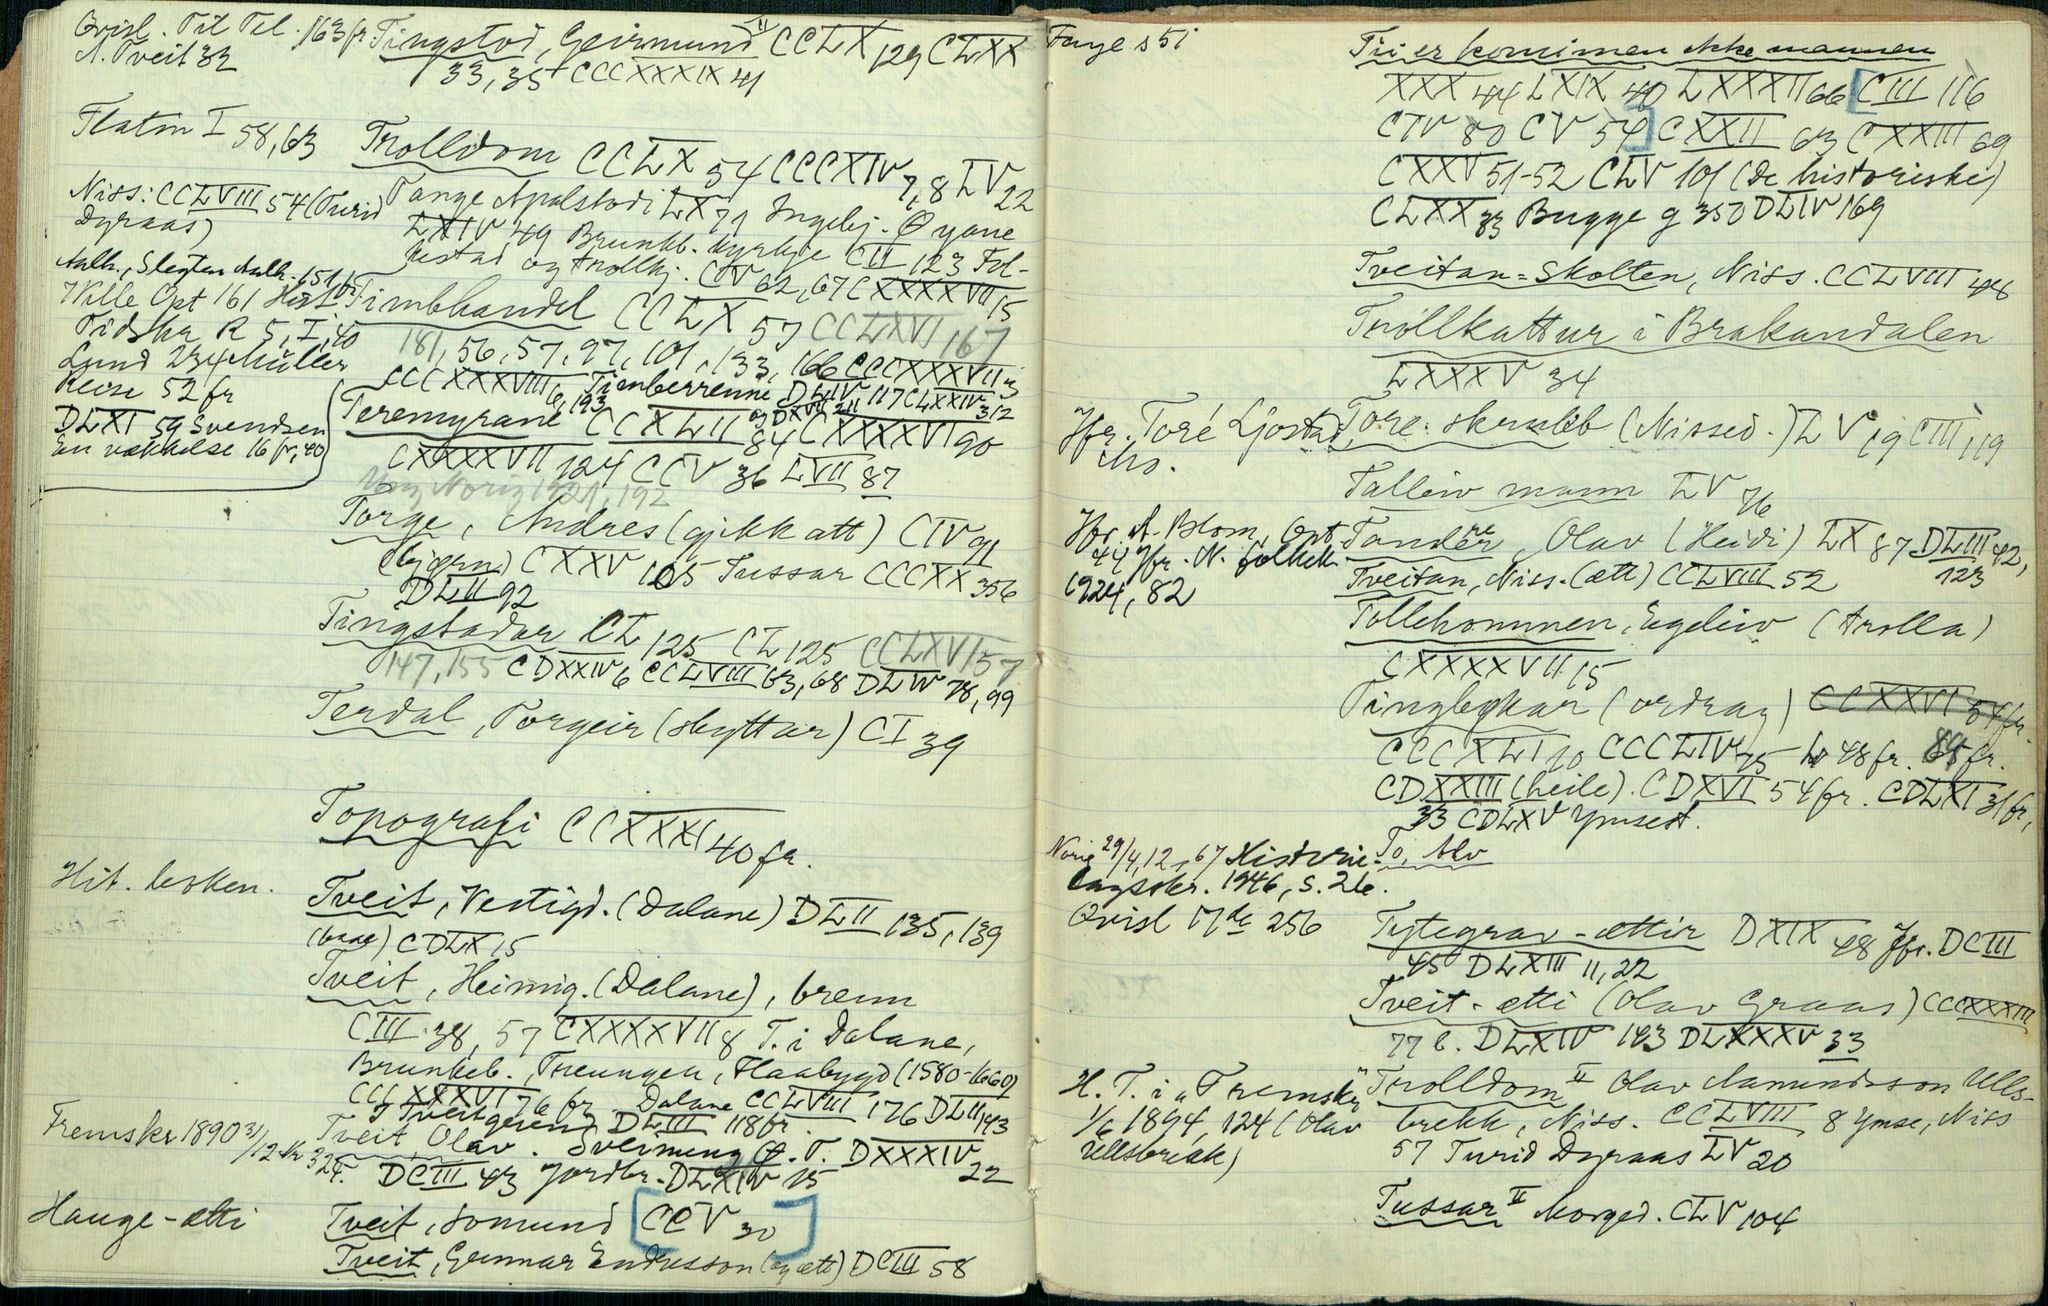 Qvisl. Til Tel. 163 fr Tingstod, Geirmund II CCLX 129 CLXX
A. Tveit 32
33, 35 CCCXXXIX 41
Flaton I 58, 63
Trolldom CCLX 54 CCCXIV 7, 8 LV 22
Niss: CCLVIII 54 (Turid Dyraas)
Tange Apalstodi LX 71 Ingebj. Øyane
LXIV 49 Brunkb. kyrkje CII 123 Fol-
kestad og trollkj. CV 62, 67 CXXXXVII 15
Aalh., Slegten Aalh. 151 fr
Wille Opt 161 Hist.
Tidskr R 5, I, 40
Lund 234 Müller
Reise 52 fr
DLXI 59 Svendsen
En vækkelse 16 fr, 40
Timbhandel CCLX 57 CCLXVI 167
181, 56, 57, 97, 101, 133, 166 CCCXXXVII 13
CCCXXXVIII 6, 193 Timberrenne DLIV 117 CLXXIV 312
Teremyrane CCXLII 84 CXXXXVI 90
CXXXXVII 124 CCV 36 LVII 87
Ung Norig 1921, 192
Torge, Andres (gjekk att) CIV 91
(bjørn) CXXV 105 Tussar CCCXX 356
DLII 92
Tingstadar CL 125 CL 125 CCLXVI 57
147, 155 CDXXIV 6 CCLVIII 63, 68 DLIV 78, 99
Terdal, Torgeir (skyttar) CI 39
Topografi CCXXXI 40 fr.
Hit. lesken.
Tveit, Vestigd. (Dalane) DLII 135, 139
CDLX 15
Tveit, Heimig. (Dalane), brenn
CIII 38, 57 CXXXXVII 8 T. i Dalane,
Brunkeb., Treungen, Flaabygd (1580-1660)
CCCXXXVI 76 fr Dalane CCLVIII 176 DLII 143
Tveitgrend DLIII 118 fr.
Fremskr 1890 31/12 Nr 324.
Tveit, Olav. Sveinung O. T. DXXXIV 22
DCIII 43 Jordbr. DLXIV 15
Hauge-ætti
Tveit, Somund [CCV 30]
Tveit, Gunnar Endresson (og ætt) DCIII 58
Faye s 51
Tri er komimen ikke mannen
XXX 44 LXIX 40 LXXXII 66 [CIII 116
CIV 80 CV 54] CXXII 63 CXXIII 69
CXXV 51-52 CLV 101 (De historiske)
CLXX 33 Bugge g 350 DLIV 169
Tveitan=Skolten, Niss. CCLVIII 48
Trollkattur i Brakandalen
LXXXV 34
Jfr. Toré Ljostad, Mo.
Tore skrubb (Nissed.) LV 19 CIII 119
Talleiv mann LV 76
Jfr. A. Blom, Opt. 44 Jfr. N. folkek. 1924, 82
Tandere, Olav (Heidi) LX 87 DLIII 42, 123
Tveitan, Niss. (ætt) CCLVIII 52
Tollekommen, Egeleiv (Arolla)
CXXXXVII 15
Tingbøkar (ordrag) CCXXVI 54 fr.
CCCXLI 10 CCCLIV 75 48 fr. 65 fr.
CDXXIII (heile). CDXVI 54 fr. CDLXI 31 fr,
33 CDLXV Ymsest.
Norig 29/4, 12, 67 Historie-
lagsskr. 1946, s. 26.
To, Alv
Qvisl 17de 256
Tytegrav-ættir DXIX 48 Jfr. DCIII
45 DLXIII 11, 22
Tveit-ætti (Olav Graas) CCCXXXIII
77 b. DLXIV 143 DLXXXV 33
H. T. i "Fremskr"
1/6 1894, 124 (Olav
Ullsbrekk)
Trolldom II Olav Aamundsson Ulls-
brekk, Niss. CCLVIII 8 Ymse, Niss
57 Turid Dyraas LV 20
Tussar II Morged. CLV 104